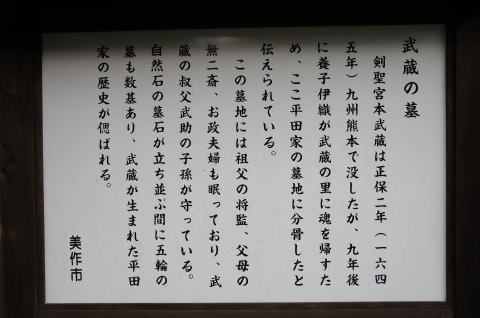 武蔵の墓
剣聖宮本武蔵は正保二年（一六四
五年）九州熊本で没したが、九年後
に養子伊織が武蔵の里に魂を帰すた
め、ここ平田家の墓地に分骨したと
伝えられている。
この墓地には祖父の将監、父母の
無二斎、お政夫婦も眠っており、武
蔵の叔父武助の子孫が守っている。
自然石の墓石が立ち並ぶ間に五輪の
墓も数基あり、武蔵が生まれた平田
家の歴史が偲ばれる。
美作市